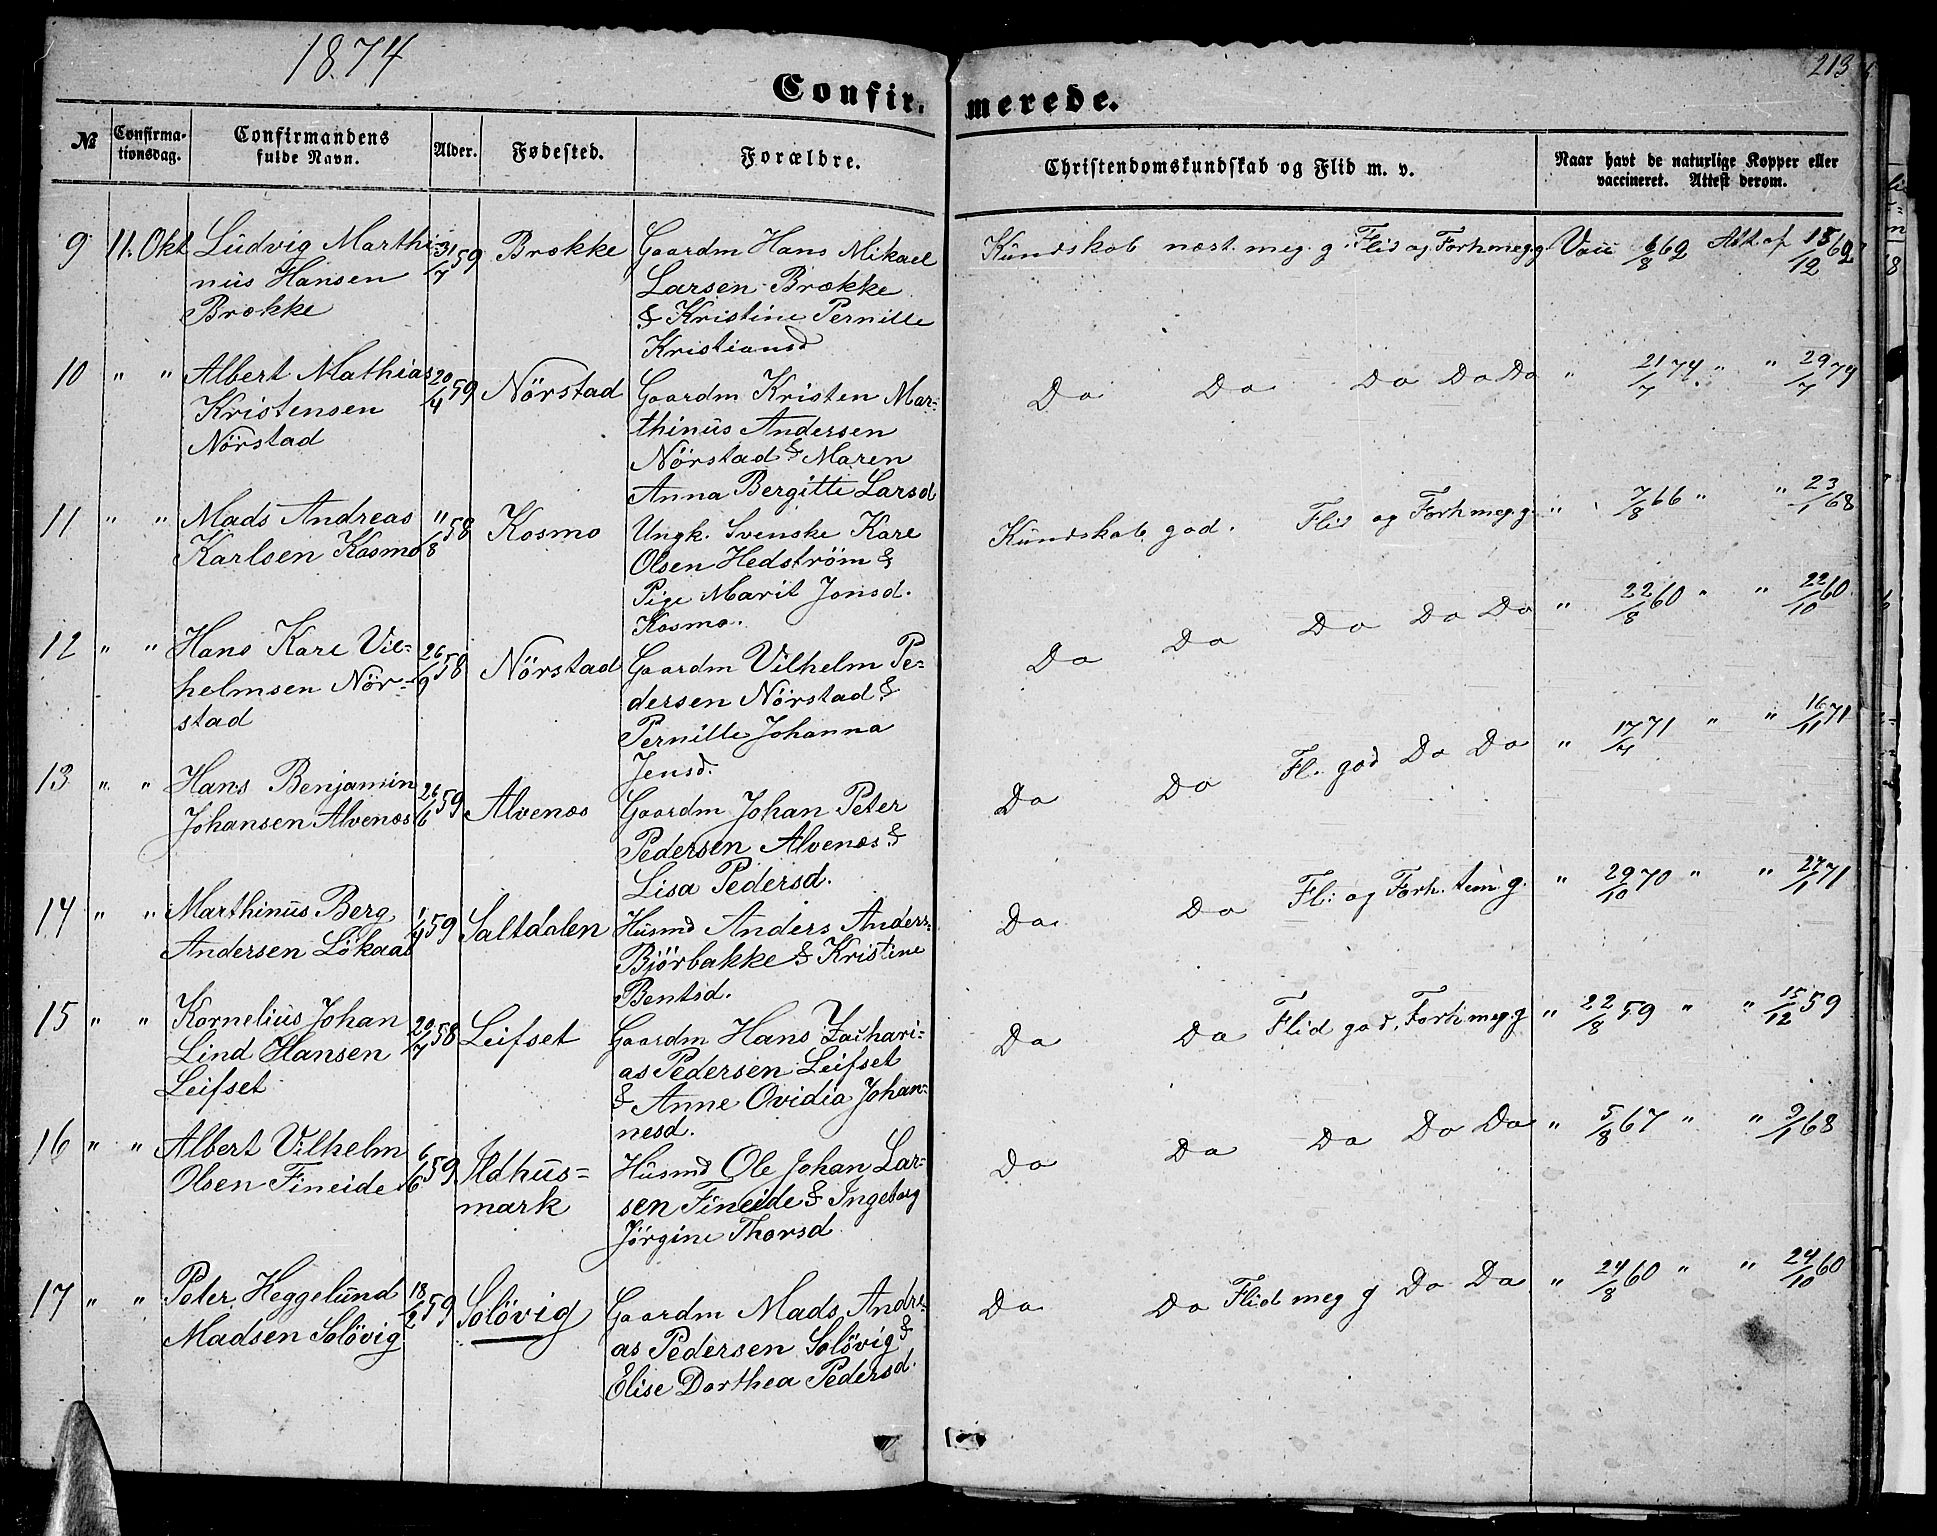 1874
213
Confir- merede.
№ Confirma-tionsdag. Confirmandens fulde Navn. Alder. Fødested. Forældre. Christendomskundskab og Flid m. v. Naar havt de naturlige Kopper eller vaccineret. Attest derom.
9 11. Okt Ludvig Marthi- 31/7 59 Brække Gaardm Hans Mikael Kundskab næst. meg. g. Flid og Forh meg. g. Vacc 6/8 62 Att. af 18/12 62
nius Hansen Larsen Brække
Brække & Kristine Pernille
Kristiansd
10 " " Albert Mathias 20/4 59 Nörstad Gaardm Kristen Mar- Do Do Do Do Do " 21/7 74 " " 29/7 74
Kristensen thinus Andersen
Nörstad Nörstad & Maren
Anna Bergitte Larsd
11 " " Mads Andreas 11/8 58 Kosmo Ungk. Svenske Karl Kundskab god. Flid og Forh meg. g. " 7/8 66 " " 23/1 68
Karlsen Kosmo Olsen Hedström &
Pige Marit Jonsd.
Kosmo.
12 " " Hans Karl Vil- 26/9 58 Nörstad Gaardm Vilhelm Pe- Do Do Do Do Do " 22/8 60 " " 22/10 60
helmsen Nör- dersen Nörstad &
stad Pernille Johanna
Jensd.
13 " " Hans Benjamin 26/6 59 Alvenæs Gaardm Johan Peter Do Do Fl. god Do Do " 17/4 71 " " 16/11 71
Johansen Alvenæs Pedersen Alvenæs &
Lisa Pedersd.
14 " " Marthinus Berg 1/4 59 Saltdalen Husmd Anders Anders- Do Do Fl: og Forh. tem. g. " 29/10 70 " " 27/1 71
Andersen Lökaas Björbakke & Kristine
Bentsd.
15 " " Kornelius Johan 20/7 58 Leifset Gaardm Hans Zachari- Do Do Flid god, Forh meg. g " 22/8 59 " " 15/12 59
Lind Hansen as Pedersen Leifset
Leifset & Anne Ovidia Johan-
nesd.
16 " " Albert Vilhelm 6/6 59 Ildhus- Husmd Ole Johan Lar- Do Do Do Do Do " 5/8 67 " " 9/1 68
Olsen Fineide mark sen Fineide & Ingeborg
Jörgine Thorsd
17 " " Peter Heggelund 18/2 59 Solövig Gaardm Mads Andre- Do Do Flid meg g Do Do " 24/8 60 " " 24/10 60
Madsen Solövig as Pedersen Solövig &
Elise Dorthea Pedersd.